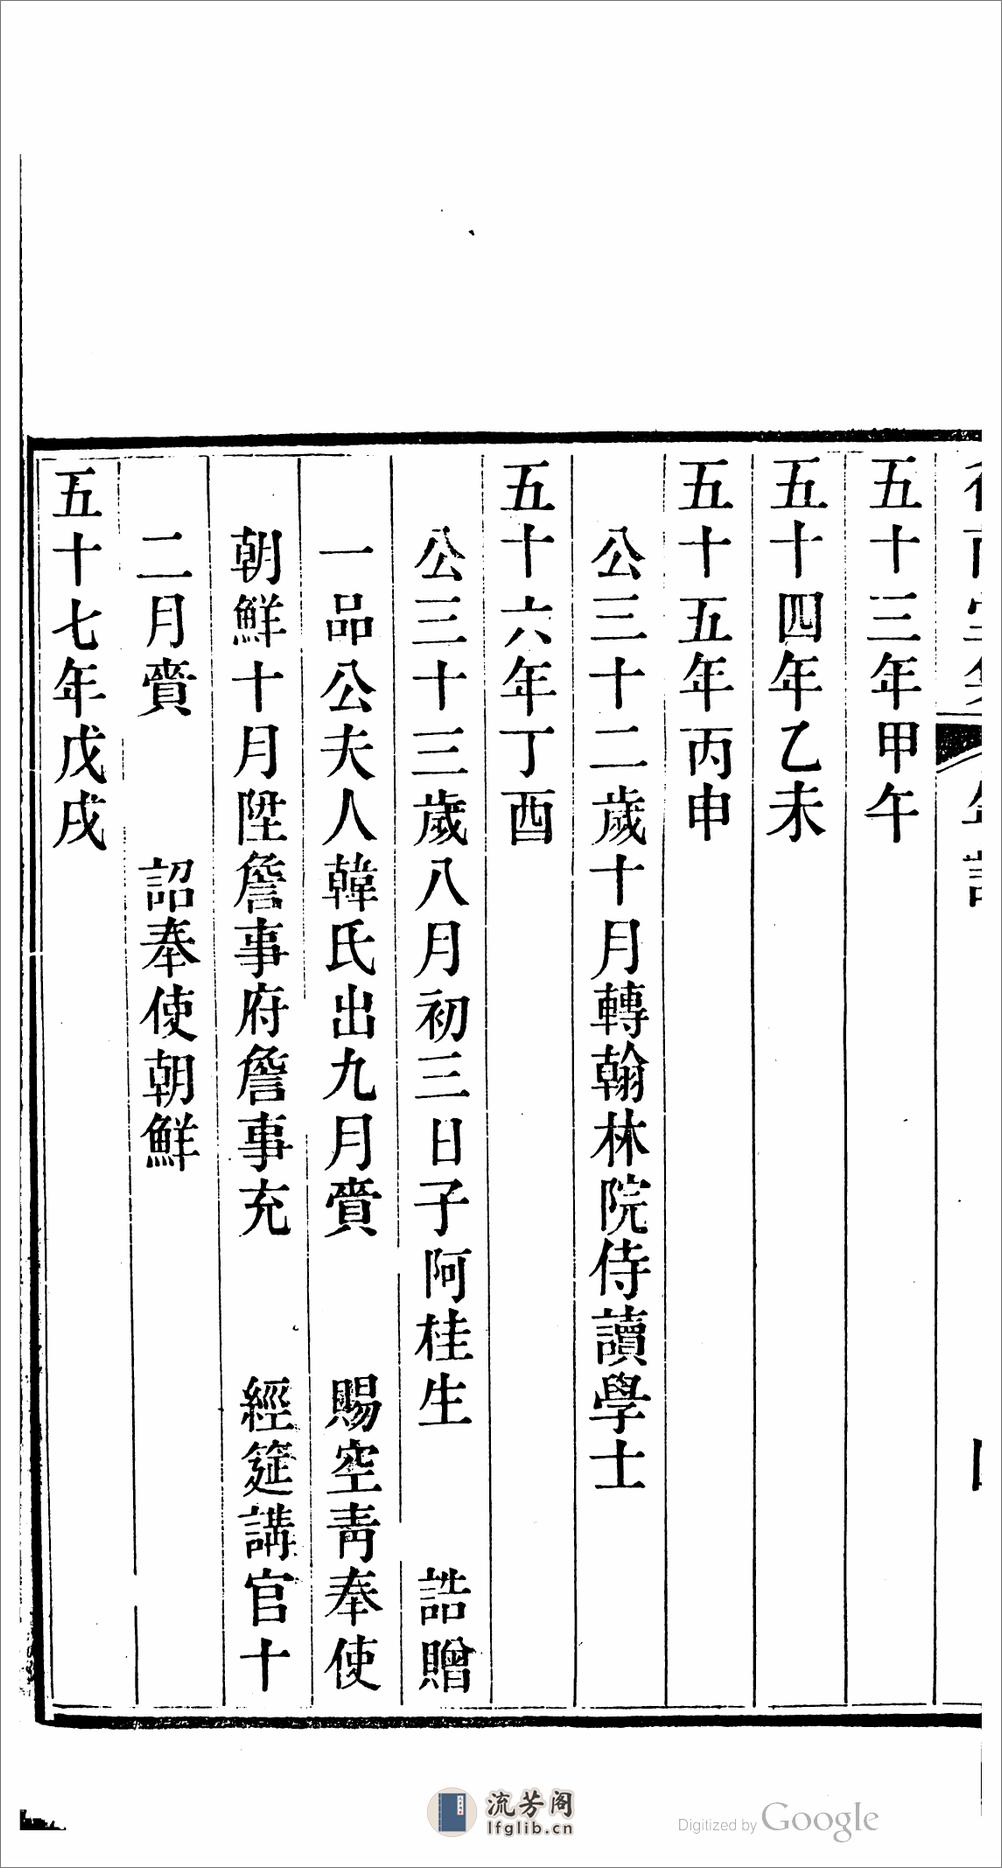 五十三年甲午
五十四年乙未
五十五年丙申
公三十二歲十月轉翰林院侍讀學士
五十六年丁酉
公三十三歲八月初三日子阿桂生　　誥贈
一品公夫人韓氏出九月賫　　賜空青奉使
朝鮮十月陞詹事府詹事充　　經筵講官十
二月賫　　詔奉使朝鮮
五十七年戊戌
流芳阁
lfglib.cn
Digitized by Google